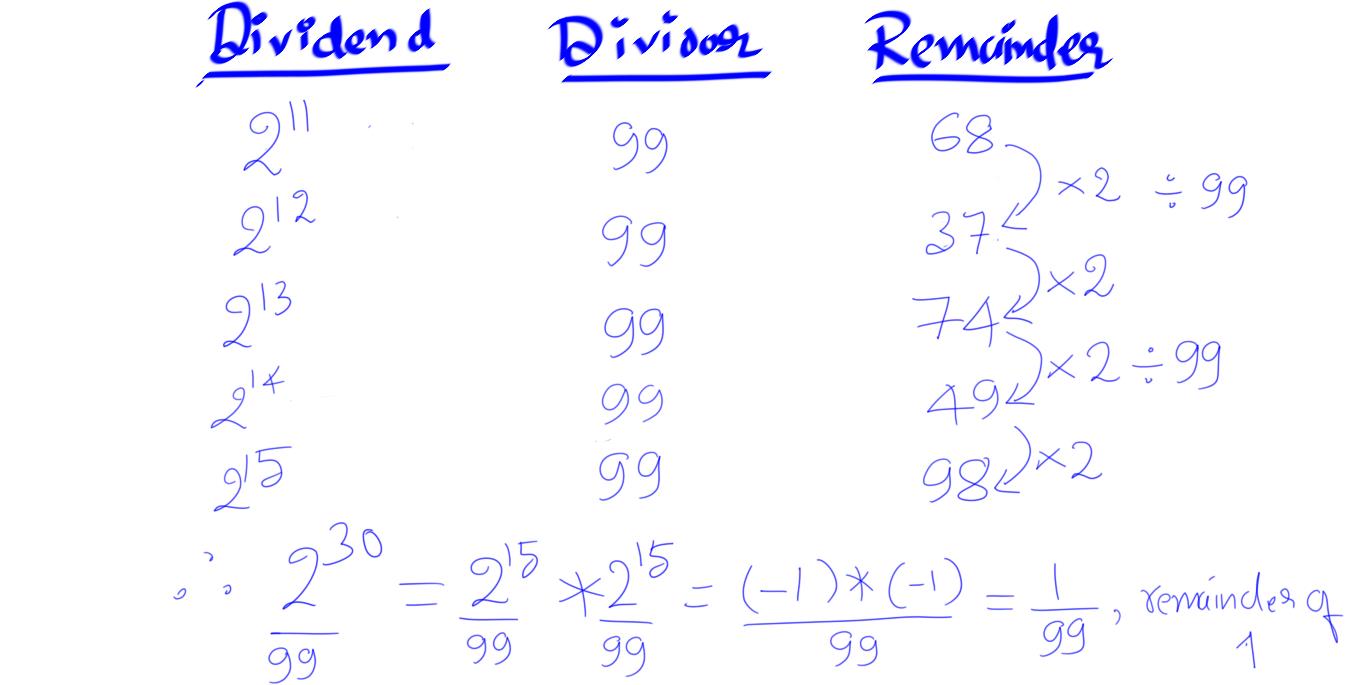 Dividend Divisor Remainder
2^11 99 68
×2 ÷ 99
2^12 99 37
×2
2^13 99 74
×2 ÷ 99
2^14 99 49
×2
2^15 99 98
∴ 2^30/99 = 2^15/99 * 2^15/99 = (-1)*(-1)/99 = 1/99, remainder of
1